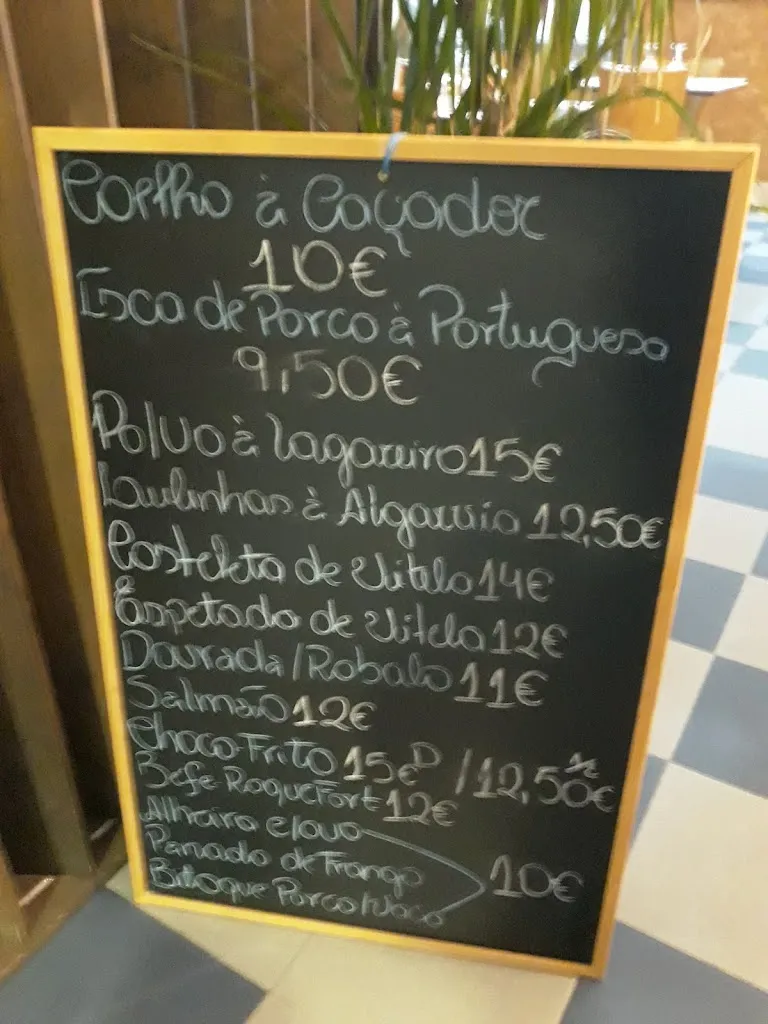 Coelho à Caçador
10€
Isca de Porco à Portuguesa
9,50€
Polvo à Lagareiro 15€
Lulinhas à Algarvia 12,50€
Costeleta de Vitela 14€
Espetada de Vitela 12€
Dourada/Robalo 11€
Salmão 12€
Choco Frito 15€ D / 12,50€ ½
Bife Roquefort 12€
Alheira c/ovo
Panado de Frango 10€
Bitoque Porco/Vaca